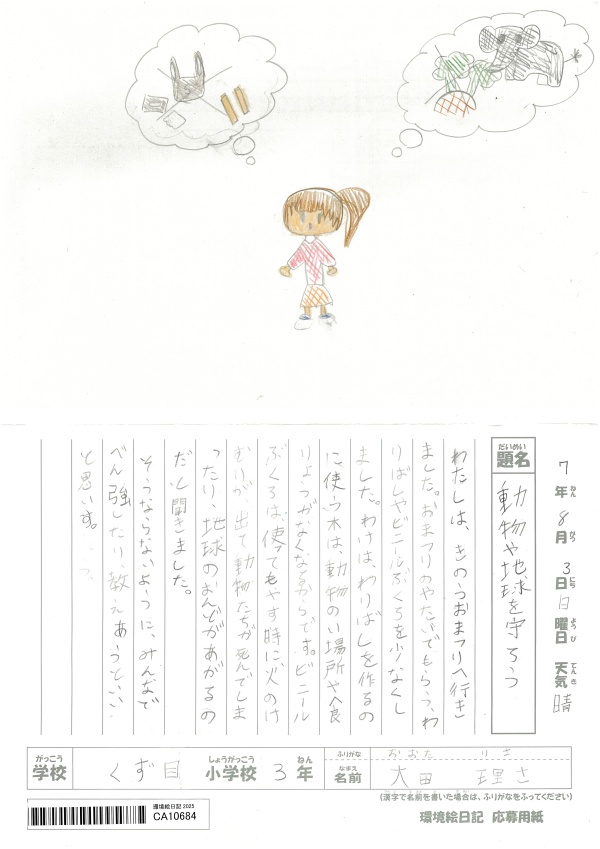 7年ねん8月がつ3日にち日曜日ようび天気てんき晴
題名だいめい
動物や地球を守ろう
わたしは、きのうおまつりへ行き
ました。おまつりのやたいでもらう、わ
りばしやビニールぶくろを少なくし
ました。わけは、わりばしを作るの
に使う木は、動物のい場所や食
りょうがなくなるからです。ビニール
ぶくろは、使ってもやす時に、火のけ
むりが出て動物たちが死んでしま
ったり、地球のおんどがあがるの
だと聞きました。
そうならないように、みんなで
べん強したり、教えあうといい
と思います。
学校がっこう くず目 小学校しょうがっこう 3年ねん
ふりがな おおた りさ
名前なまえ 大田 理さ
(漢字で名前を書いた場合は、ふりがなをふってください)
環境絵日記 2025
CA10684
環境絵日記 応募用紙